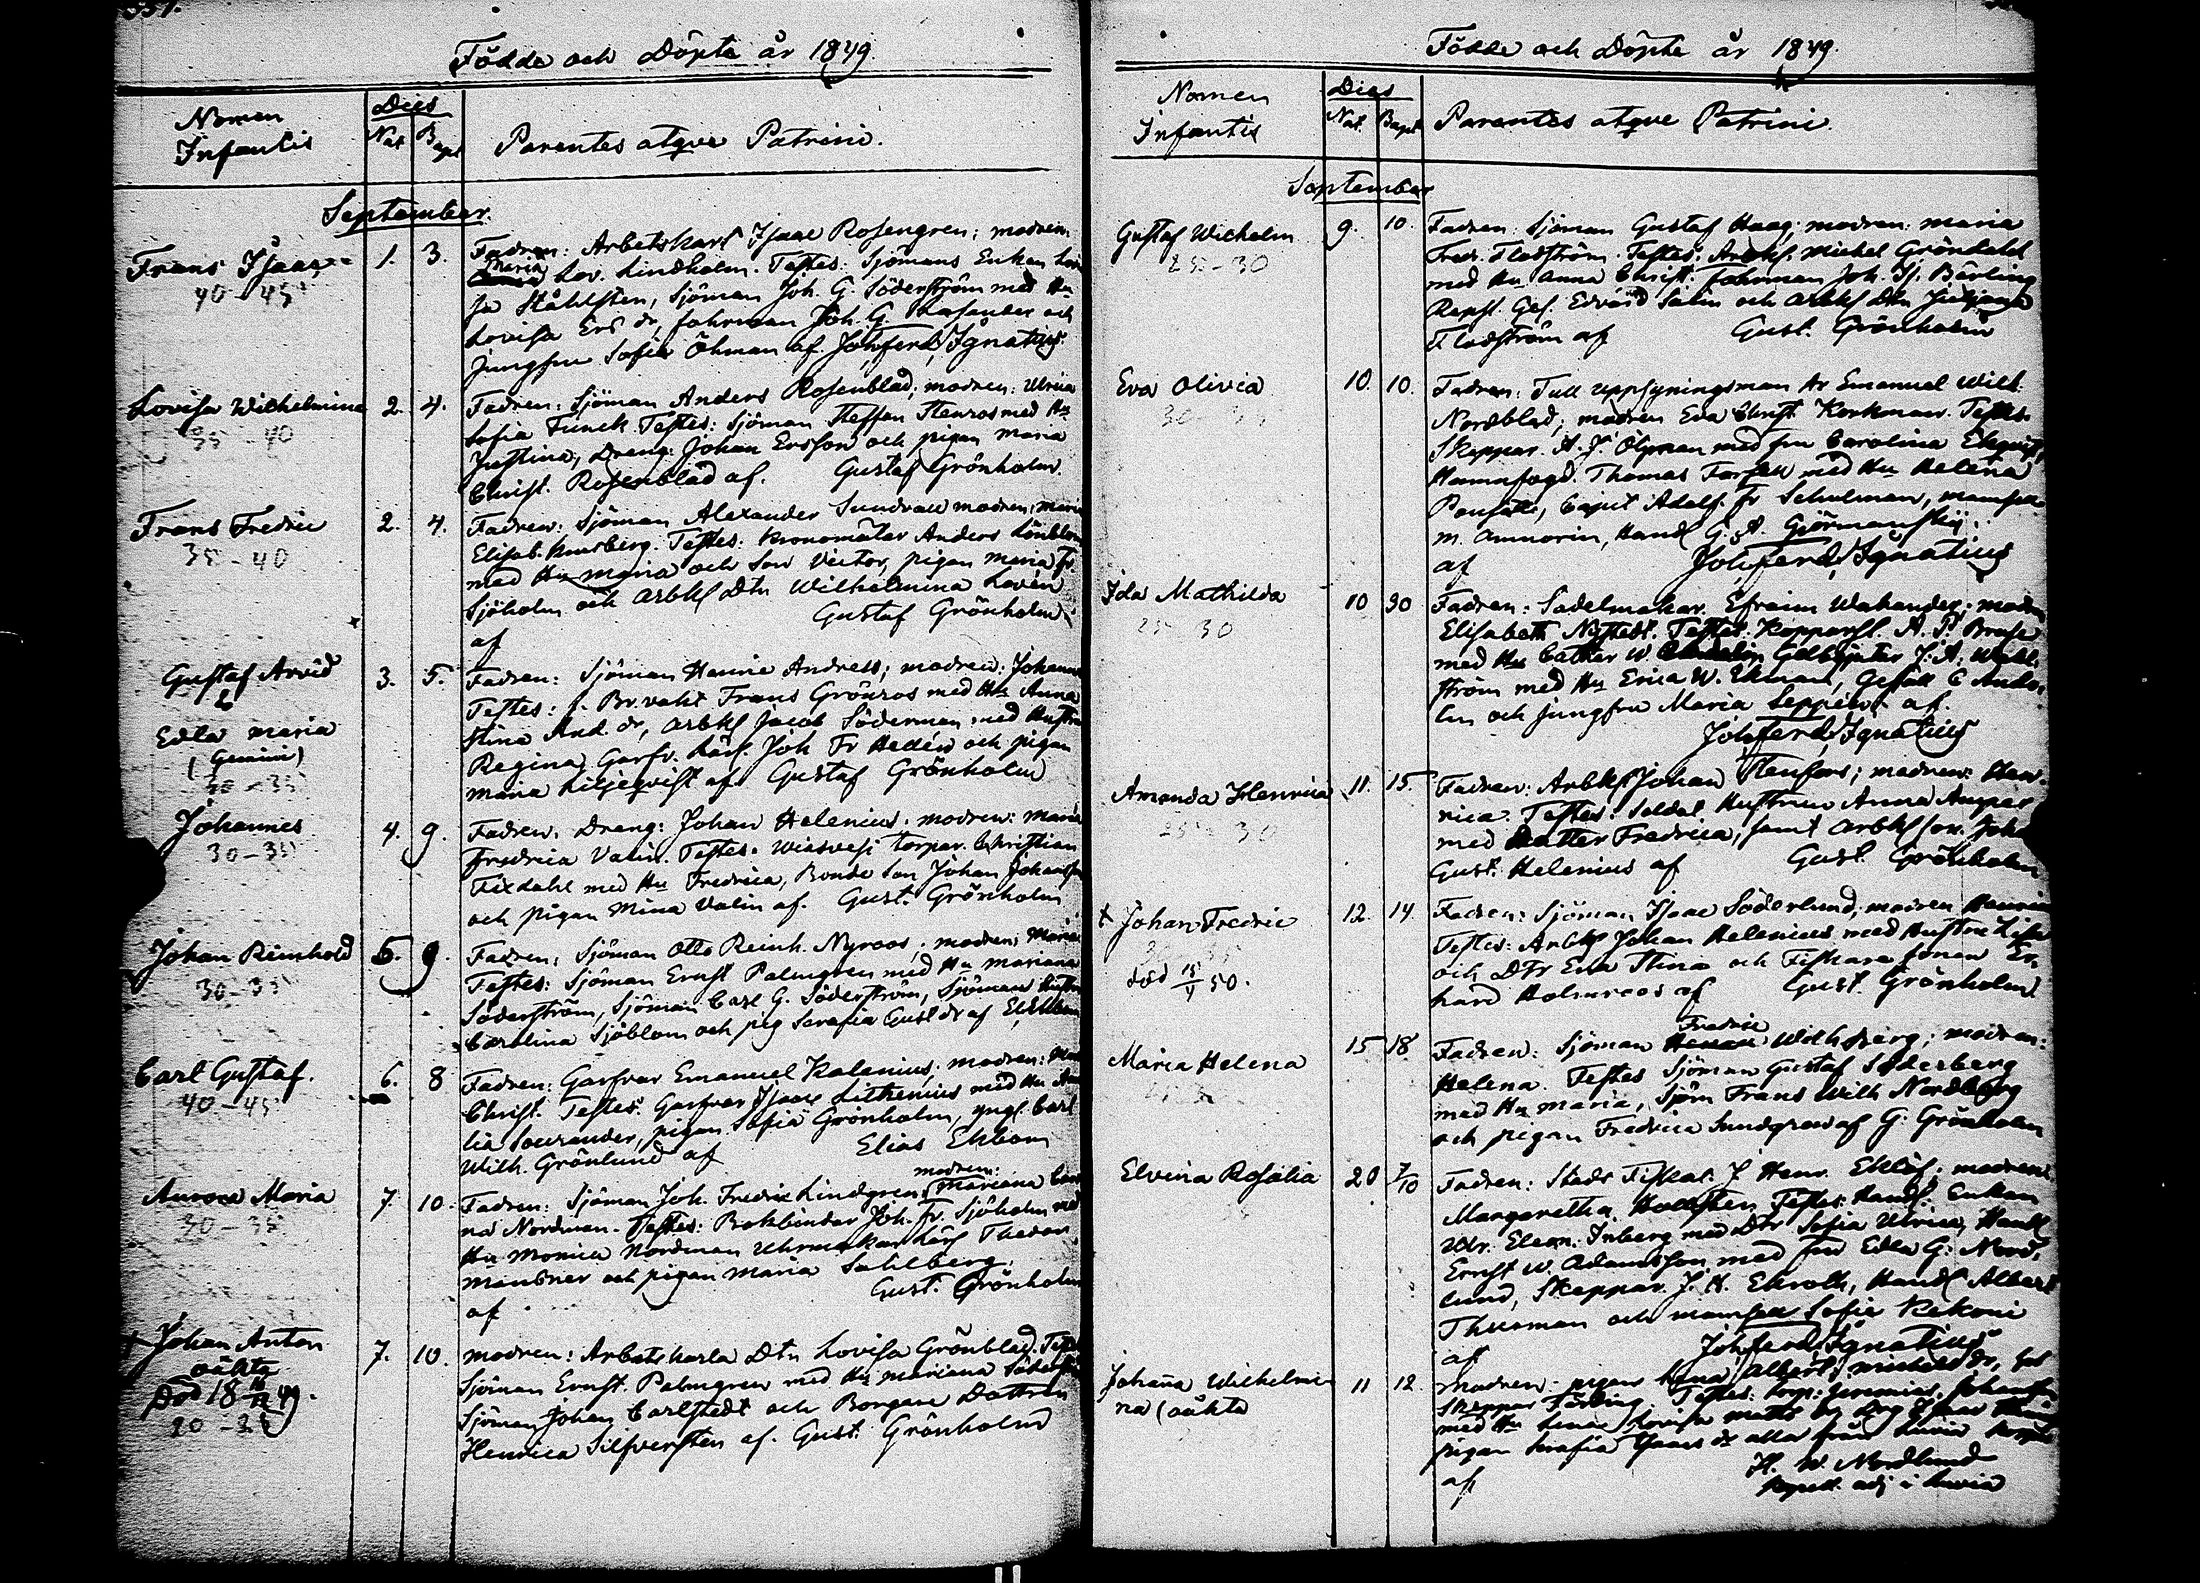 Födde och Döpte år 1849.
Nomen Infantis
Dies
Nat Bapt
Parentes atqve Patrini.
September.
Frans Isaac
40-45
1. 3.
Fadren: Arbetskarl Isaac Rosengren; modren:
Maria Lov. Lindholm. Testes: Sjömans Enkan Lovi
sa Ståhlsten, Sjöman Joh. G. Söderström med Hu
Lovisa Ers dr, fohrman Joh. G. och
Jungfru Sofia Öhman af. Joh ferd Ignatius
Lovisa Wilhelmina
35-40
2. 4.
Fadren: Sjöman Anders Rosenblad; modren: Ulrica
Sofia Funck. Testes: Sjöman Steffan Stenros med Hu
Justina, Dreng: Johan Ersson och pigan Maria
Christ. Rosenblad af. Gustaf Grönholm.
Frans Fredric
35-40
2. 4.
Fadren: Sjöman Alexander Sundvall modren: Maria
Elisab. Testes: Kronomätar Anders Lönblom
med Hu Maria och Son Victor, pigan Maria Fr.
Sjöholm och Arbkl Dtn Wilhelmina Lovén
af Gustaf Grönholm.
Gustaf Arvid
&
Edla Maria
(Gemini)
30-35
3. 5.
Fadren: Sjöman Henric Andreas; modren: Johanna
Testes: f. Br.vakt Frans Grönros med Hu Anna
Stina And. dr, Arbkl Jacob Söderman med Hustru
Regina, Garfv. Lärl. Joh Fr Hedén och pigan
Maria Liljeqvist af Gustaf Grönholm
Johannes
30-35
4. 9.
Fadren: Dreng: Johan Helenius. modren: Maria
Fredrica Valin. Testes: Wiasvesi torpar. Christian
Fixdahl med Hu Fredrica, Bonde Son Johan Johansson
och pigan Mina Valin af. Gust. Grönholm
Johan Reinhold
30-35
5. 9.
Fadren: Sjöman Otto Reinh. Nyroos; modren: Maria
Testes: Sjöman Ernst Palmgren med Hu Mariana
Söderström, Sjöman Carl G. Söderström, Sjöman Hustru
Carolina Sjöblom och pig Serafia Gust dr af El. Ekbom
Carl Gustaf.
40-45
6. 8
Fadren: Garfvar Emanuel Kalenius; modren:
Christ. Testes. Garfvar Isaac Lithenius med Hu
lia Sourander, pigan Sofia Grönholm, yngl. Carl
Wilh. Grönlund af Elias Ekbom
Aurora Maria
30-35
7. 10.
Fadren: Sjöman Joh. Fredric Lindgren; modren: Mariana
na Nordman. Testes: Bokbindar Joh. Fr. Sjöholm med
Hu Monica Nordman Uhrmakar Lärl Theodor
Meubner och pigan Maria Sahlberg.
af Gust. Grönholm
† Johan Anton
oäkta
Död 18 49.
20-25
7. 10.
modren: Arbetskarls Dtn Lovisa Grönblad. Testes
Sjöman Ernst. Palmgren med Hu Mariana Söderström
Sjöman Johan Carlstedt och Borgare Dottren
Henrica Silfversten af. Gust. Grönholm
Födde och Döpte år 1849.
Nomen Infantis
Dies
Nat. Bapt
Parentes atqve Patrini.
September
Gustaf Wilhelm
25-30
9. 10.
Fadren: Sjöman Gustaf Haag; modren: Maria
Fred. Flodström. Testes: Arbkl. Michel Gröndahl
med Hu Anna Christ. fohrman Joh. Is. Bärling
Repsl. Ges. Edvard Salin och Arbkl Dtn
Flodström af Gust. Grönholm
Eva Olivia
10. 10.
Fadren: Tull uppsyningsman Hr Emanuel Wilh.
Nordblad; modren Eva Christ. Korkman. Testes.
Skeppar. A. J. Öhman med fru Carolina Ekqvist,
Hamnfogd. Thomas Forsell med Hu Helena
Capit Adolf Fr Schulman, mamsell
m. Ammorin, Handl G. A. Gjörmanskij.
af Joh ferd Ignatius
Ida Mathilda
25 30
10 30
Fadren: Sadelmakar. Efraim Wahander; modren
Elisabeth Nystedt. Testes: Kopparsl. A. P. Brese
med Hu Cathar W Gelbgjutar J. A. Wahl-
ström med Hu Erica W. Ekman, Gesäll C Ande-
lin och jungfru Maria Seppän. af.
Joh ferd Ignatius
Amanda Henrica
25 30
11. 15.
Fadren: Arbkl Johan Stenfors; modren: Hen-
rica. Testes: Soldat Hustrun Anna
med Dotter Fredrica, samt Arbkl son. Joha
Gust. Helenius af Gust Grönholm
† Johan Fredric
död 15/4 50.
12. 14.
Fadren: Sjöman Isaac Söderlund; modren Henrica
Testes: Arbkl Johan Helenius med Hustru Lisa
och Dtr Eva Stina och Fiskare sonen Er-
hard Holmroos af Gust. Grönholm
Maria Helena
15 18
Fadren: Sjöman Fredric Widhberg; modren:
Helena. Testes Sjöman Gustaf Söderberg
med Hu Maria, Sjöm Frans Wilh Nordberg
och pigan Fredrica Sundgren af G: Grönholm
Elvina Rosalia
20 7/10
Fadren: Stads Fiskal. J. Henr. Eklöf; modren:
Margaretha Hallsten Testes: Handl. Enkan
Ulr. Eleon. Inberg med Dtr Sofia Ulrica, Handl
Ernst W. Adamsson med fru Edla G: Nord-
lund, Skeppar. J. H. Ekroth, Handl Albert
Thurman och mamsell Sofie Kekoni
af Joh ferd Ignatius
Johanna Wilhelmi-
na (oäkta
11 12.
modren: pigan Lena Albert. dr,
Skeppar Testes:
med Hu Lena, Lovisa Matts dr, Drg Isaac
pigan Serafia Isaacs dr alla från Luvia
af H. W. Nordlund
adj i Luvia